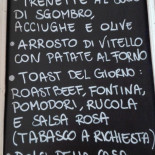 TRENETTE AL SUGO
DI SGOMBRO,
ACCIUGHE E OLIVE
• ARROSTO DI VITELLO
CON PATATE AL FORNO
• TOAST DEL GIORNO:
ROASTBEEF, FONTINA,
POMODORI, RUCOLA
E SALSA ROSA
(TABASCO A RICHIESTA)